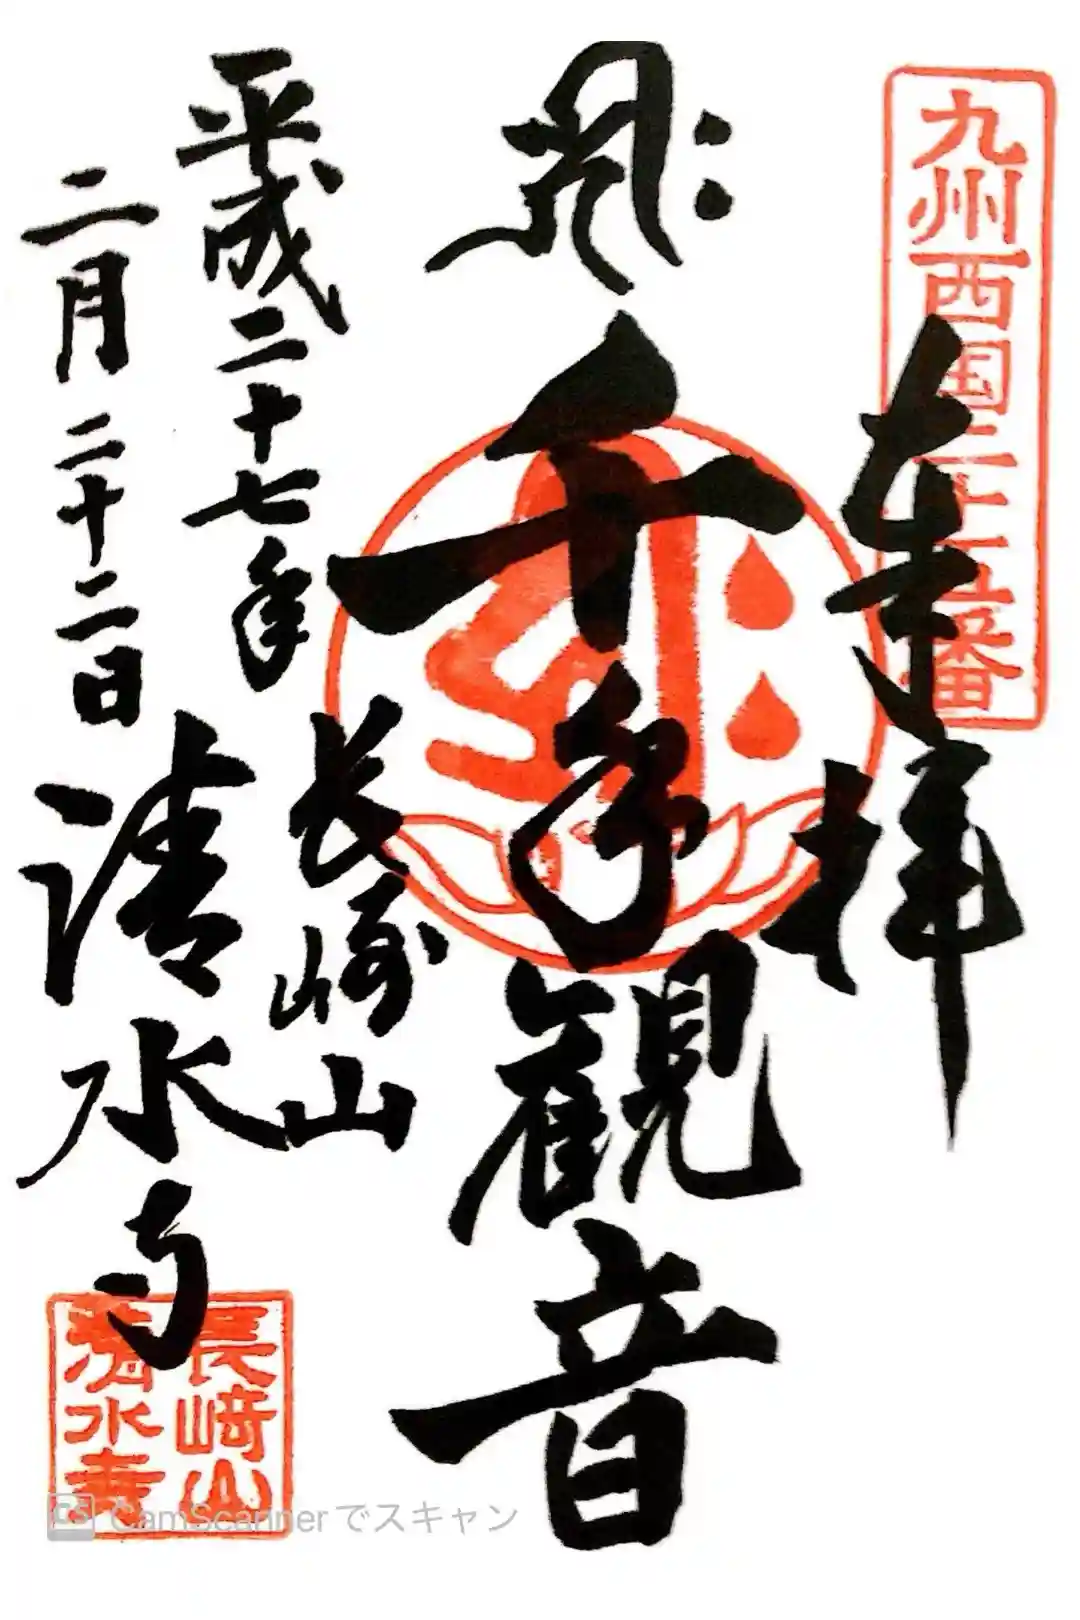 九州西国二十五番
奉拝
千手観音
長崎山
清水寺
平成二十七年
二月二十二日
長崎山
清水寺
CS CamScannerでスキャン